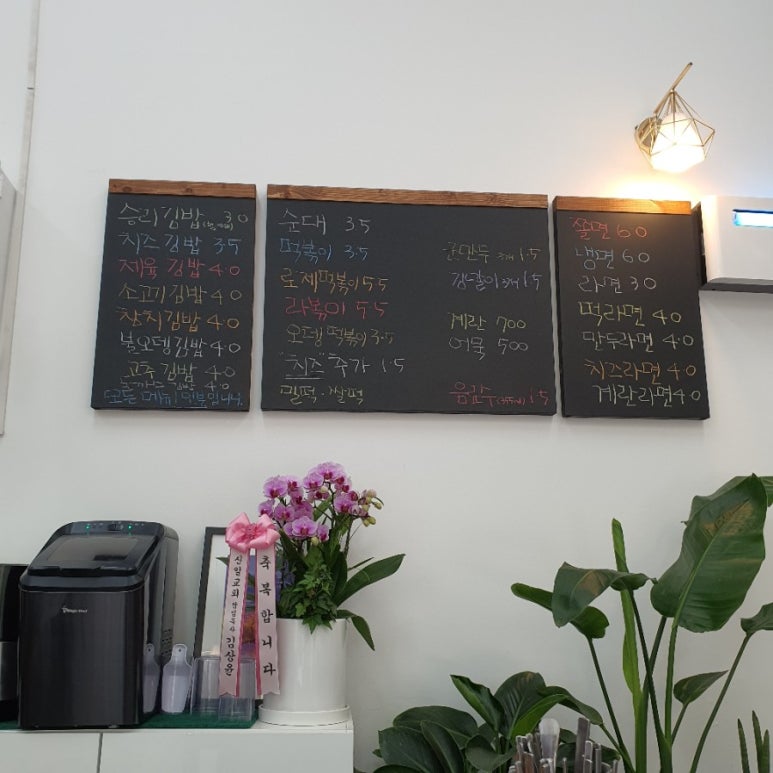 승리김밥 3.0
치즈김밥 3.5
제육김밥 4.0
소고기김밥 4.0
참치김밥 4.0
불오뎅김밥 4.0
고추김밥 4.0
돈까스김밥 4.0
모든 메뉴
순대 3.5
떡볶이 3.5
로제떡볶이 5.5
라볶이 5.5
오뎅떡볶이 3.5
"치즈"추가 1.5
밀떡·쌀떡
군만두 3개 1.5
김말이 3개 1.5
계란 700
어묵 500
음료수 (355ml) 1.5
쫄면 6.0
냉면 6.0
라면 3.0
떡라면 4.0
만두라면 4.0
치즈라면 4.0
계란라면 4.0
축복합니다
신일교회 담임목사 김상윤